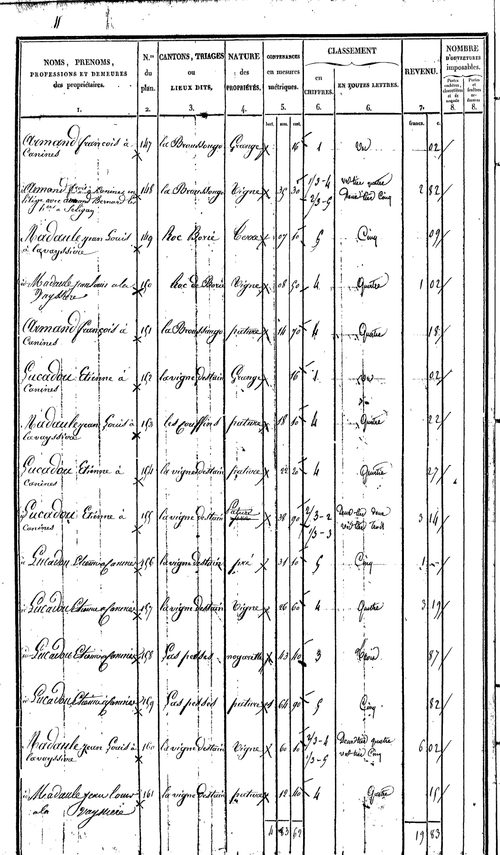 11
NOMS, PRENOMS,
PROFESSIONS ET DEMEURES
des propriétaires.
N.os
du
plan.
CANTONS, TRIAGES
ou
LIEUX DITS,
NATURE
des
PROPRIÉTÉS.
CONTENANCES
en mesures
métriques.
CLASSEMENT
en
CHIFFRES.
EN TOUTES LETTRES.
REVENU.
NOMBRE
D'OUVERTURES
imposables.
1. 2. 3. 4. 5. 6. 6. 7. 8. 8.
hect. ares. cent. francs. c.
Armand françois à 147 la Broussonge Grange 16 1 un 02
Canines
148 la Broussonge Vigne 35 30 1/3-4 2 82
2/3-5 Deux tiers Cinq
Madaule jean Louis 149 Roc Borie 07 60 5 Cinq 09
à lavayssière
Madaule jean louis a la 150 Roc de Borie Vigne 08 50 4 Quatre 1 02
Vayssière
Armand françois à 151 la Broussonge pature 14 70 4 Quatre 18
Canines
Lucadou Etienne à 152 la vigne destain Grange 16 1 un 02
Canines
Madaule jean Louis à 153 les couffins pature 18 10 4 Quatre 22
lavayssière
Lucadou Etienne à 154 la vigne destain pature 22 20 4 Quatre 27
Canines
Lucadou Etienne à 155 la vigne destain Pature 38 90 2/3-2 deux tiers deux 3 14
Canines 1/3-3 un tiers trois
Lucadou Etienne a Canines 156 la vigne destain pré 31 10 5 Cinq 1
Lucadou Etienne a Canines 157 la vigne destain Vigne 26 60 4 Quatre 3 19
Lucadou Etienne a Canines 158 Las pesses 43 40 3 trois 87
Lucadou Etienne a Canines 159 Las pesses pature 64 90 5 Cinq 82
Madaule jean Louis à 160 la vigne destain Vigne 60 2/3-4 Deux tiers quatre 6 02
lavayssière 1/3-5 un tiers Cinq
Madaule jean louis 161 la vigne destain pature 12 60 4 Quatre 15
a la Vayssière
4 83 62 19 83